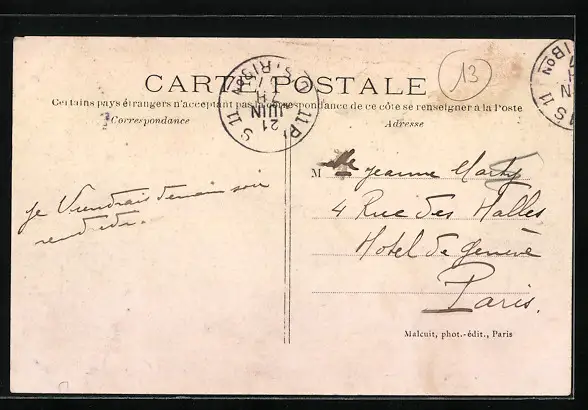 CARTE POSTALE
Certains pays étrangers n'acceptant pas la correspondance de ce côté se renseigner à la Poste
Correspondance
Adresse
13
21
JUIN
S 11
je Viendrais demain soir
M lle Jeanne Marty
4 Rue des Halles
Hotel de Genève
Paris.
Malcuit, phot.-édit., Paris